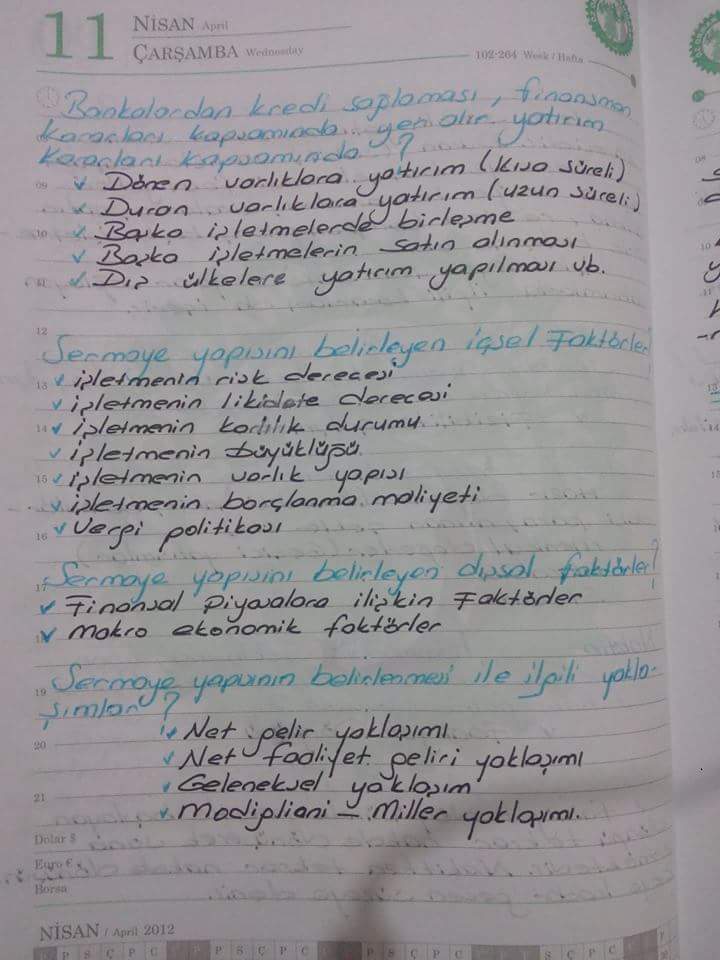 11 NİSAN April
ÇARŞAMBA Wednesday
102-264 Week / Hafta
Bankalardan kredi sağlaması, finansman
kararları kapsamında yer alır yatırım
kararları kapsamında ?
09 ✓ Dönen varlıklara yatırım (kısa süreli)
✓ Duran varlıklara yatırım (uzun süreli)
10 ✓ Başka işletmelerde birleşme
✓ Başka işletmelerin satın alınması
11 ✓ Dış ülkelere yatırım yapılması vb.
12
Sermaye yapısını belirleyen içsel Faktörler
13 ✓ işletmenin risk derecesi
✓ işletmenin likidite derecesi
14 ✓ işletmenin karlılık durumu
✓ işletmenin büyüklüğü
15 ✓ işletmenin varlık yapısı
✓ işletmenin borçlanma maliyeti
16 ✓ Vergi politikası
17 Sermaye yapısını belirleyen dışsal faktörler?
✓ Finansal Piyasalara ilişkin Faktörler
✓ makro ekonomik faktörler
19 Sermaye yapısının belirlenmesi ile ilgili yakla-
şımlar ?
20 ✓ Net gelir yaklaşımı
✓ Net faaliyet geliri yaklaşımı
✓ Geleneksel yaklaşım
21 ✓ Modigliani - Miller yaklaşımı.
Dolar $
Euro €
Borsa
NİSAN / April 2012
P S Ç P C P S Ç P C P S Ç P C